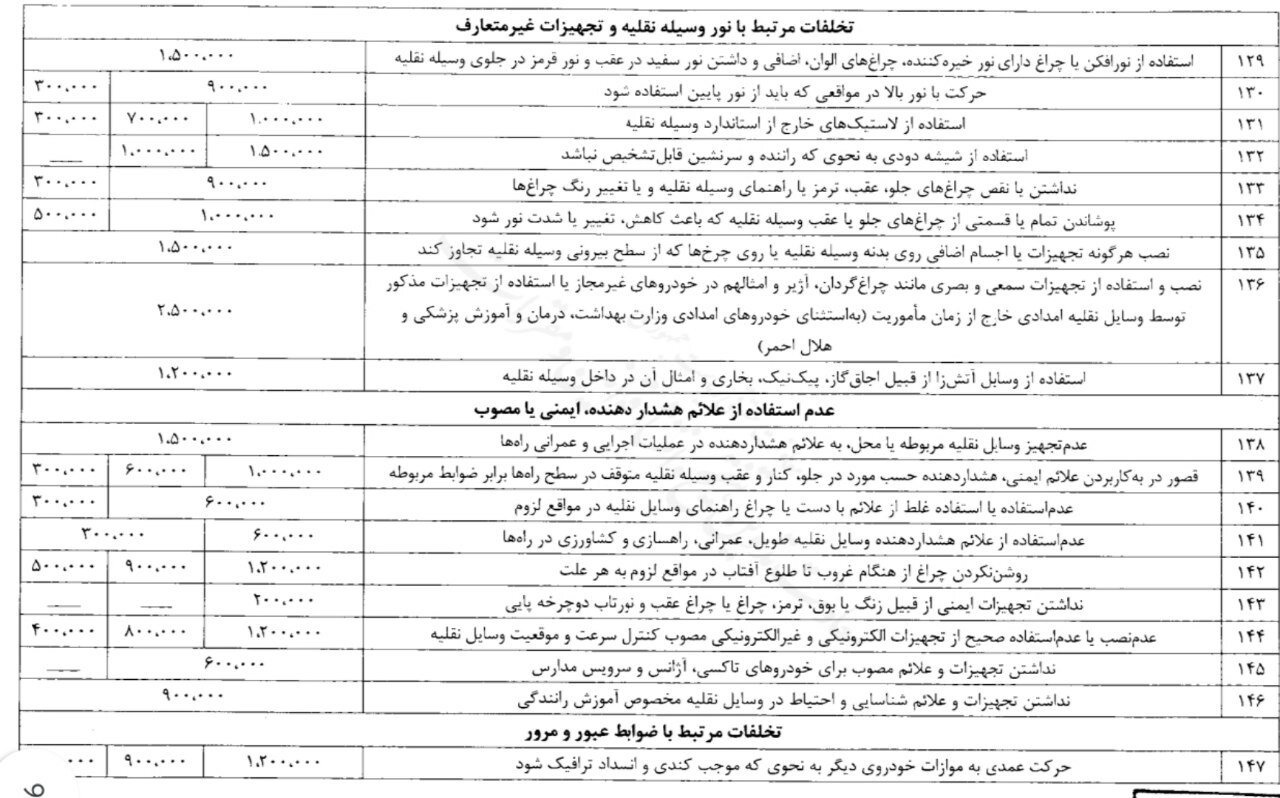 تخلفات مرتبط با نور وسیله نقلیه و تجهیزات غیرمتعارف
۱۲۹ استفاده از نورافکن یا چراغ دارای نور خیره‌کننده، چراغ‌های الوان، اضافی و داشتن نور سفید در عقب و نور قرمز در جلوی وسیله نقلیه ۱،۵۰۰،۰۰۰
۱۳۰ حرکت با نور بالا در مواقعی که باید از نور پایین استفاده شود ۹۰۰،۰۰۰ ۳۰۰،۰۰۰
۱۳۱ استفاده از لاستیک‌های خارج از استاندارد وسیله نقلیه ۱،۰۰۰،۰۰۰ ۷۰۰،۰۰۰ ۳۰۰،۰۰۰
۱۳۲ استفاده از شیشه دودی به نحوی که راننده و سرنشین قابل‌تشخیص نباشد ۱،۵۰۰،۰۰۰ ۱،۰۰۰،۰۰۰ ——
۱۳۳ نداشتن یا نقص چراغ‌های جلو، عقب، ترمز یا راهنمای وسیله نقلیه و یا تغییر رنگ چراغ‌ها ۹۰۰،۰۰۰ ۳۰۰،۰۰۰
۱۳۴ پوشاندن تمام یا قسمتی از چراغ‌های جلو یا عقب وسیله نقلیه که باعث کاهش، تغییر یا شدت نور شود ۱،۰۰۰،۰۰۰ ۵۰۰،۰۰۰
۱۳۵ نصب هرگونه تجهیزات یا اجسام اضافی روی بدنه وسیله نقلیه یا روی چرخ‌ها که از سطح بیرونی وسیله نقلیه تجاوز کند ۱،۵۰۰،۰۰۰
۱۳۶ نصب و استفاده از تجهیزات سمعی و بصری مانند چراغ‌گردان، آژیر و امثالهم در خودروهای غیرمجاز یا استفاده از تجهیزات مذکور
توسط وسایل نقلیه امدادی خارج از زمان مأموریت (به‌استثنای خودروهای امدادی وزارت بهداشت، درمان و آموزش پزشکی و ۲،۵۰۰،۰۰۰
هلال احمر)
۱۳۷ استفاده از وسایل آتش‌زا از قبیل اجاق‌گاز، پیک‌نیک، بخاری و امثال آن در داخل وسیله نقلیه ۱،۲۰۰،۰۰۰
عدم استفاده از علائم هشدار دهنده، ایمنی یا مصوب
۱۳۸ عدم‌تجهیز وسایل نقلیه مربوطه یا محل، به علائم هشداردهنده در عملیات اجرایی و عمرانی راه‌ها ۱،۵۰۰،۰۰۰
۱۳۹ قصور در به‌کاربردن علائم ایمنی، هشداردهنده حسب مورد در جلو، کنار و عقب وسیله نقلیه متوقف در سطح راه‌ها برابر ضوابط مربوطه ۱،۰۰۰،۰۰۰ ۶۰۰،۰۰۰ ۳۰۰،۰۰۰
۱۴۰ عدم‌استفاده یا استفاده غلط از علائم با دست یا چراغ راهنمای وسایل نقلیه در مواقع لزوم ۶۰۰،۰۰۰ ۳۰۰،۰۰۰
۱۴۱ عدم‌استفاده از علائم هشداردهنده وسایل نقلیه طویل، عمرانی، راهسازی و کشاورزی در راه‌ها ۶۰۰،۰۰۰ ۳۰۰،۰۰۰
۱۴۲ روشن‌نکردن چراغ از هنگام غروب تا طلوع آفتاب در مواقع لزوم به هر علت ۱،۲۰۰،۰۰۰ ۹۰۰،۰۰۰ ۵۰۰،۰۰۰
۱۴۳ نداشتن تجهیزات ایمنی از قبیل زنگ یا بوق، ترمز، چراغ یا چراغ عقب و نورتاب دوچرخه پایی ۲۰۰،۰۰۰ —— ——
۱۴۴ عدم‌نصب یا عدم‌استفاده صحیح از تجهیزات الکترونیکی و غیرالکترونیکی مصوب کنترل سرعت و موقعیت وسایل نقلیه ۱،۲۰۰،۰۰۰ ۸۰۰،۰۰۰ ۴۰۰،۰۰۰
۱۴۵ نداشتن تجهیزات و علائم مصوب برای خودروهای تاکسی، آژانس و سرویس مدارس ۶۰۰،۰۰۰ ——
۱۴۶ نداشتن تجهیزات و علائم شناسایی و احتیاط در وسایل نقلیه مخصوص آموزش رانندگی ۹۰۰،۰۰۰
تخلفات مرتبط با ضوابط عبور و مرور
۱۴۷ حرکت عمدی به موازات خودروی دیگر به نحوی که موجب کندی و انسداد ترافیک شود ۱،۲۰۰،۰۰۰ ۹۰۰،۰۰۰